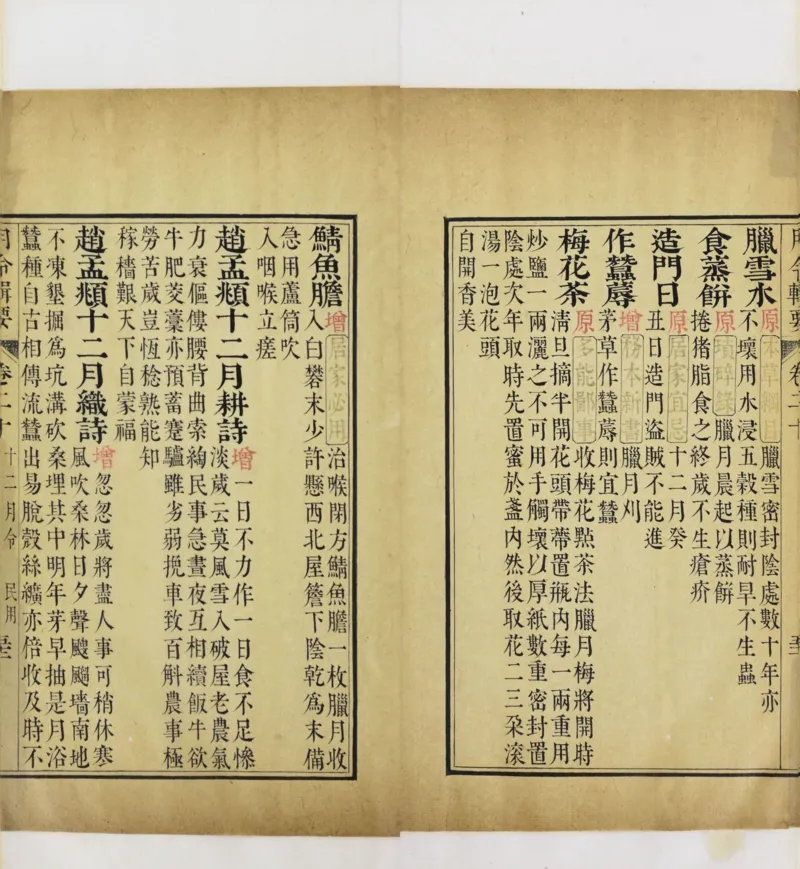 臘雪水 原 本草綱目 臘雪密封陰處數十年亦
不壞用水浸五穀種則耐旱不生蟲
食蒸餅 原 瑣碎錄 臘月晨起以蒸餅
捲猪脂食之終歲不生瘡疥
造門日 原 居家宜忌 十二月癸
丑日造門盜賊不能進
作蠶蓐 增 務本新書 臘月刈
茅草作蠶蓐則宜蠶
梅花茶 原 多能鄙事 收梅花點茶法臘月梅將開時
清旦摘半開花頭帶蔕置瓶內每一兩重用
炒鹽一兩灑之不可用手觸壞以厚紙數重密封置
陰處次年取時先置蜜於盞內然後取花二三朶滾
湯一泡花頭
自開香美
鯖魚膽 增 居家必用 治喉閉方鯖魚膽一枚臘月收
入白礬末少許懸西北屋簷下陰乾爲末備
急用蘆筒吹
入咽喉立瘥
趙孟頫十二月耕詩 增 一日不力作一日食不足慘
淡歲云莫風雪入破屋老農氣
力衰傴僂腰背曲索綯民事急晝夜互相續飯牛欲
牛肥茭藁亦預蓄蹇驢雖劣弱挽車致百斛農事極
勞苦歲豈恆稔熟能知
稼穡艱天下自蒙福
趙孟頫十二月織詩 增 忽忽歲將盡人事可稍休寒
風吹桑林日夕聲颼飀墻南地
不凍墾掘爲坑溝砍桑埋其中明年芽早抽是月浴
蠶種自古相傳流蠶出易脫殼絲纊亦倍收及時不
月令輯要 卷二十 十二月令 民用